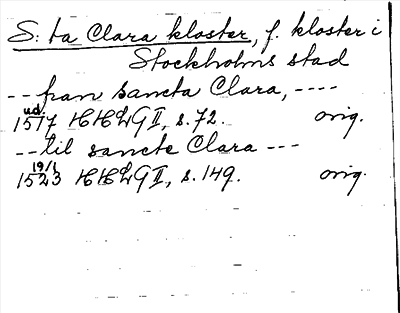 S:ta Clara kloster, f. kloster i
Stockholms stad
-- fran sancta Clara, ----
u.d.
1517 HHLG II, s. 72. orig.
-- til sancte Clara ---
19/1
1523 HHLG II, s. 149. orig.